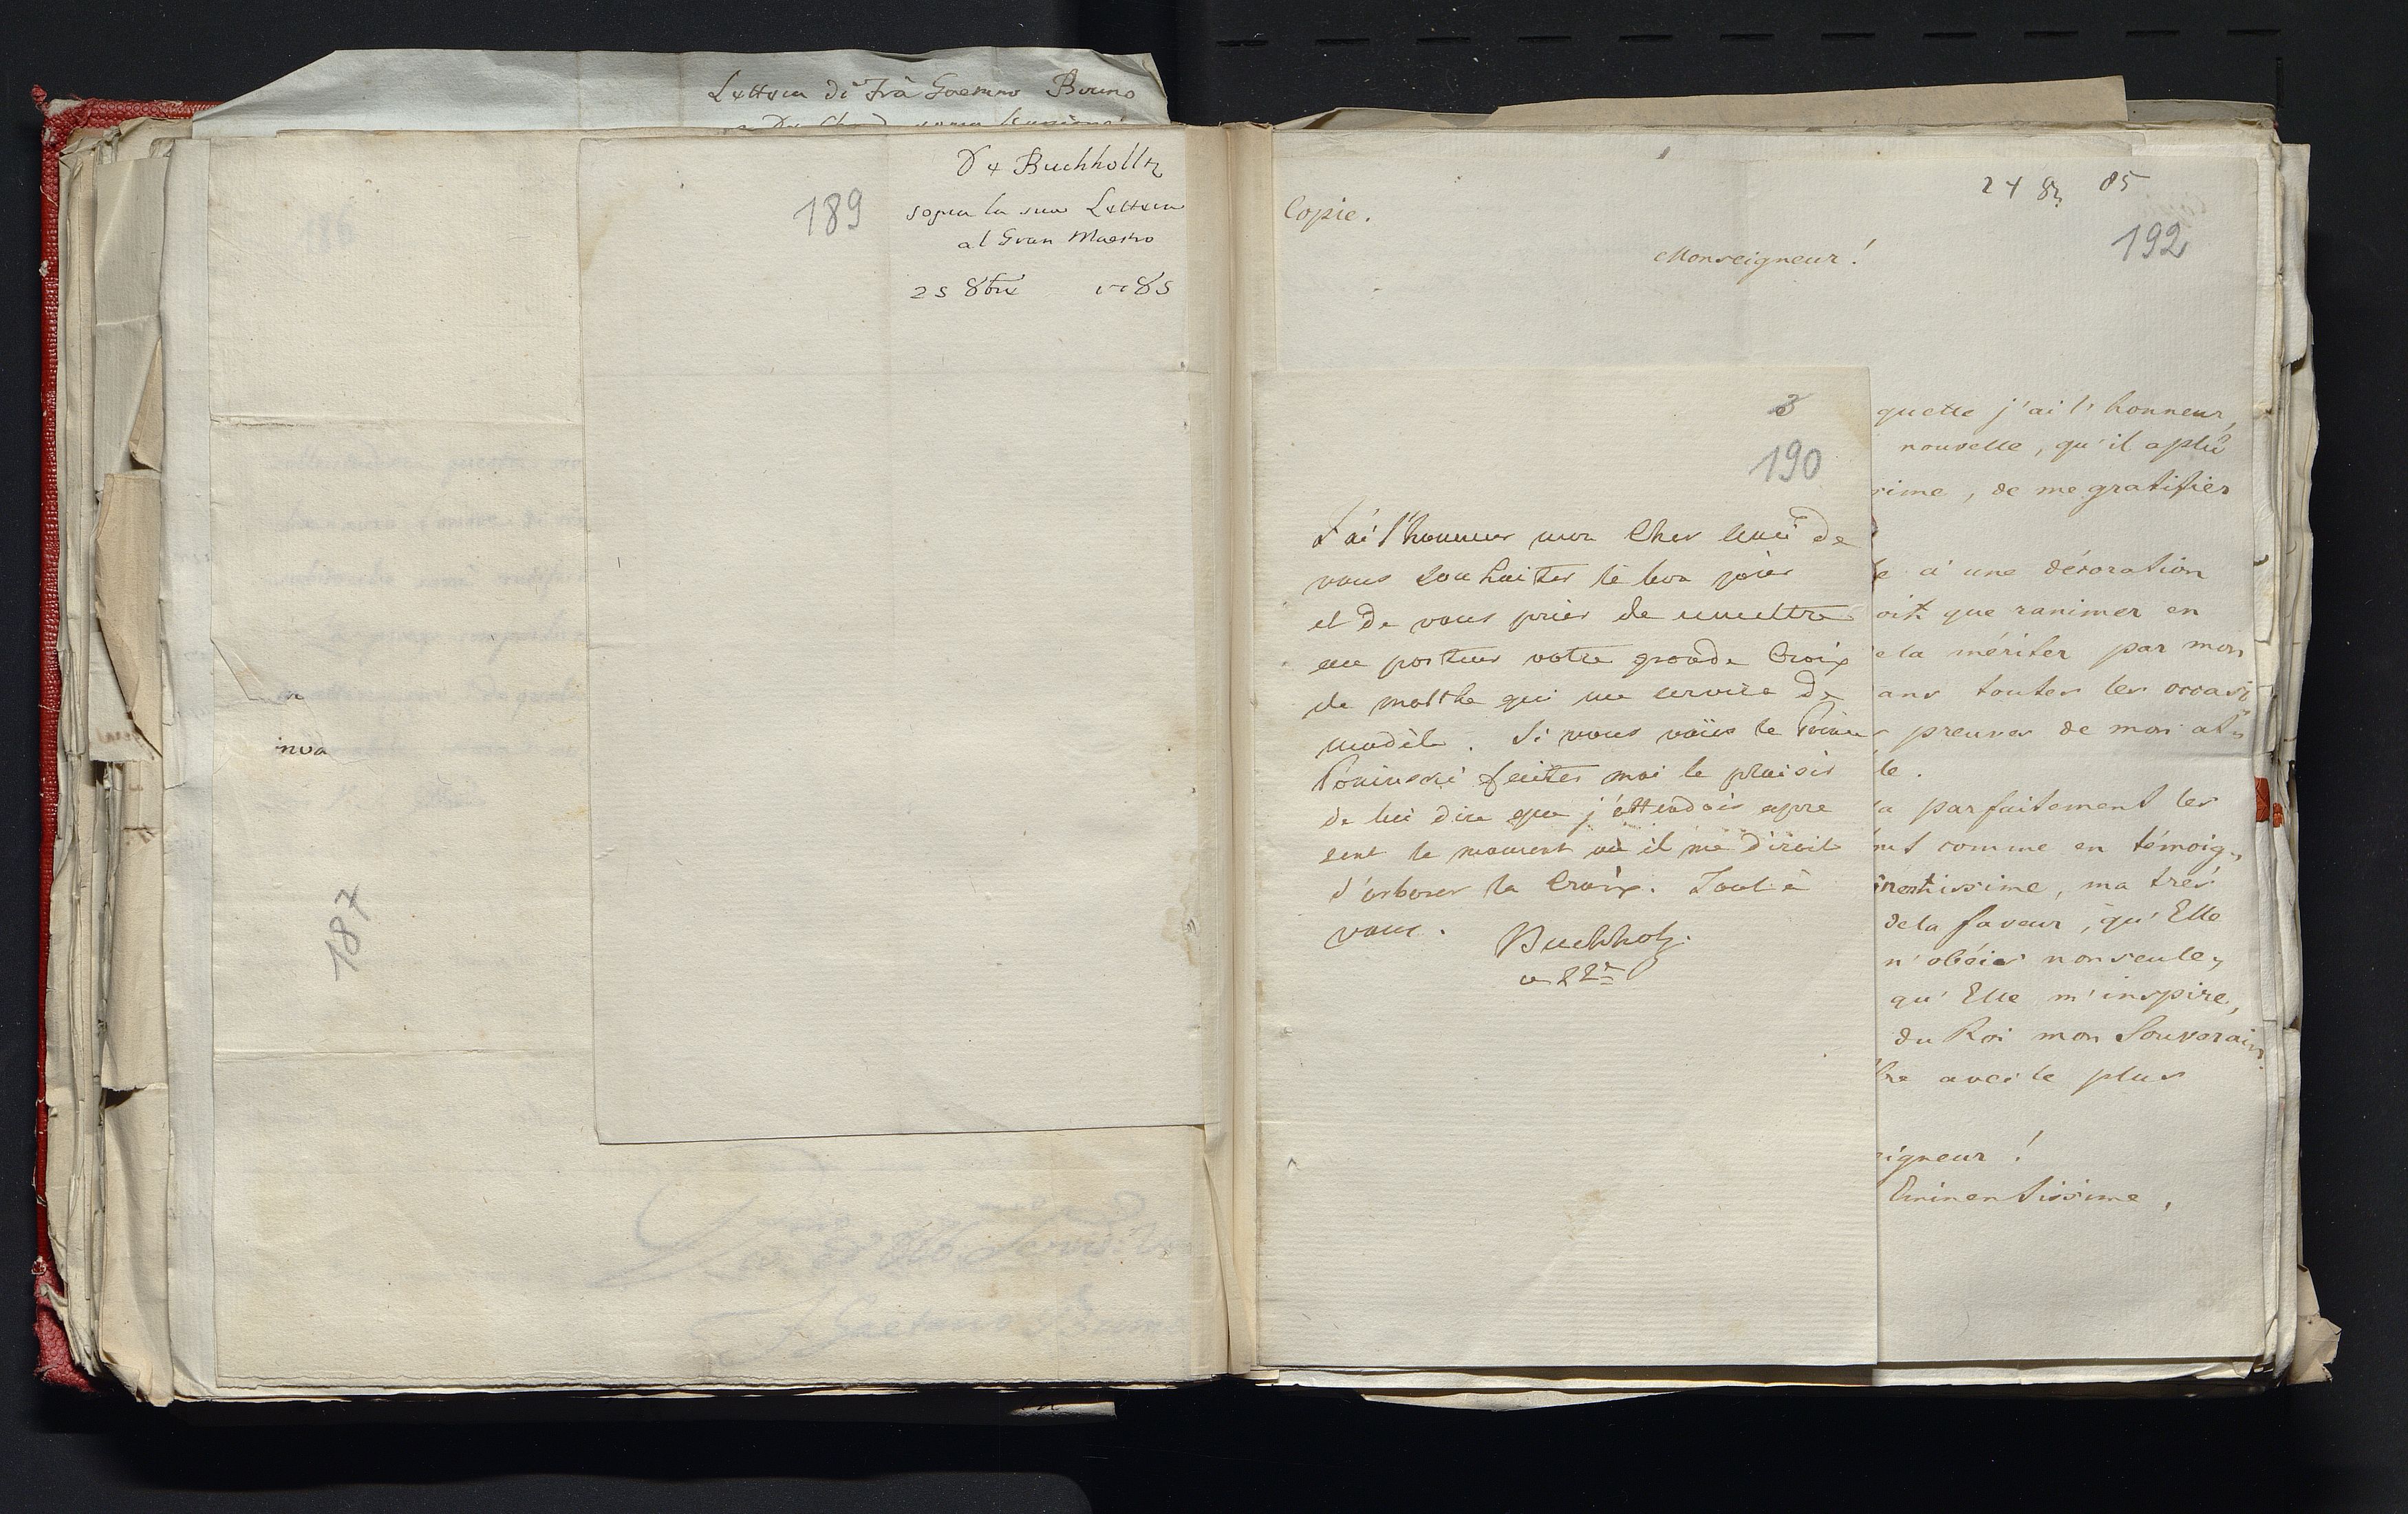 Lettera di Frà Gaetano Bruno
De Buchholtz
189
sopra la sua Lettera
al Gran Maestro
25 8bre 1785
inva
187
24 8bre 85
Copie.
192
Monseigneur!
quelle j'ai l'honneur,
nouvelle, qu'il a plû
rime, de me gratifier
e à une décoration
oit que ranimer en
e la mériter par mon
ans toutes les occasi
preuves de mon at
le.
a parfaitement les
comme en témoig
inentissime, ma très
de la faveur, qu'Elle
n'obéis non seule
qu'Elle m'inspire,
du Roi mon Souverain
avec le plus
igneur!
Eminentissime,
3
190
J'ai l'honneur mon Cher ami de
vous souhaiter le bon jour
et de vous prier de remettre
au porteur votre grande Croix
de malthe qui me servira de
modèle. Si vous voïés le Prince
Poninski faites moi le plaisir
de lui dire que j'attendois apre
sent le moment où il me diroit
d'arborer la Croix. Tout à
vous.
Buchholz.
ce 22e